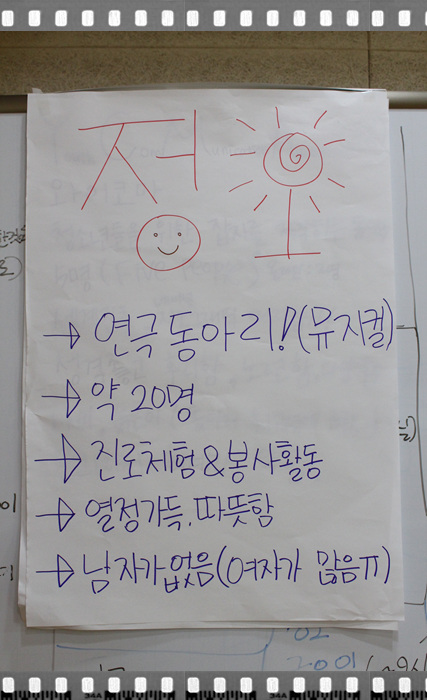 정오
→ 연극동아리!(뮤지컬)
→ 약 20명
→ 진로체험&봉사활동
→ 열정가득, 따뜻함
→ 남자가 없음(여자가 많음ㅠ)